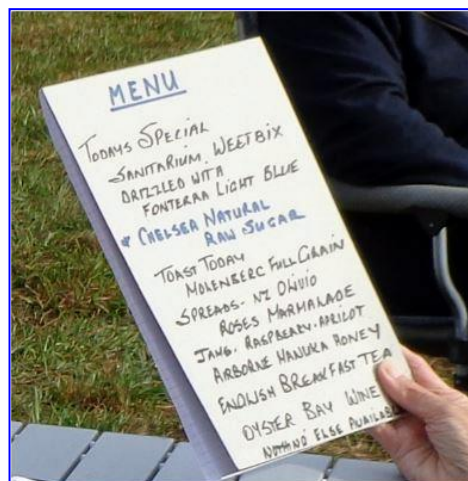 MENU
TODAYS SPECIAL
SANITARIUM WEETBIX
DRIZZLED WITH
FONTERRA LIGHT BLUE
& CHELSEA NATURAL
RAW SUGAR
TOAST TODAY
MOLENBERG FULL GRAIN
SPREADS - NZ OLIVIO
ROSES MARMALADE
JAMS. RASPBERRY. APRICOT
AIRBORNE MANUKA HONEY
ENGLISH BREAKFAST TEA
OYSTER BAY WINE
NOTHING ELSE AVAILABL